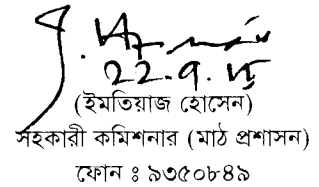 (ইমতিয়াজ হোসেন)
সহকারী কমিশনার (মাঠ প্রশাসন)
ফোন ঃ ৯৩৫০৮৪৯